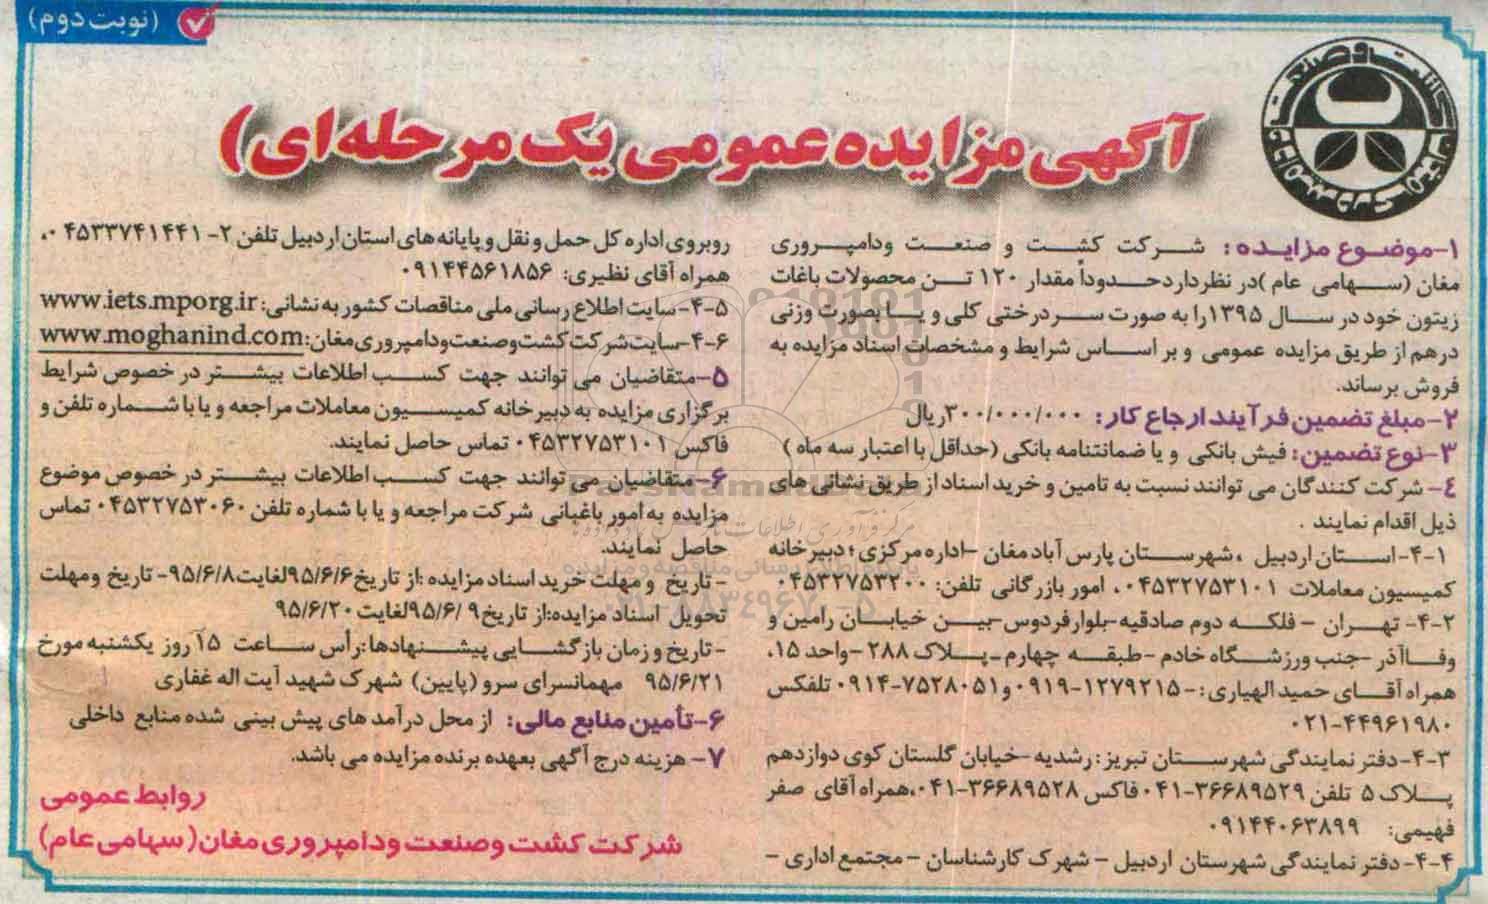 (نوبت دوم)
آگهی مزایده عمومی یک مرحله‌ای)
۱-موضوع مزایده: شرکت کشت و صنعت ودامپروری
مغان (سهامی عام )در نظردارد حدوداً مقدار ۱۲۰ تن محصولات باغات
زیتون خود در سال ۱۳۹۵را به صورت سردرختی کلی و یا بصورت وزنی
درهم از طریق مزایده عمومی و بر اساس شرایط و مشخصات اسناد مزایده به
فروش برساند.
۲-مبلغ تضمین فرآیند ارجاع کار: ۳۰۰/۰۰۰/۰۰۰ریال
۳-نوع تضمین: فیش بانکی و یا ضمانتنامه بانکی (حداقل با اعتبار سه ماه )
۴- شرکت کنندگان می توانند نسبت به تامین و خرید اسناد از طریق نشانی های
ذیل اقدام نمایند .
۴-۱- استان اردبیل ، شهرستان پارس آباد مغان -اداره مرکزی؛ دبیرخانه
کمیسیون معاملات ۰۴۵۳۲۷۵۳۱۰۱، امور بازرگانی تلفن: ۰۴۵۳۲۷۵۳۲۰۰
۴-۲- تهران - فلکه دوم صادقیه-بلوارفردوس-بین خیابان رامین و
وفاآذر -جنب ورزشگاه خادم -طبقه چهارم -پلاک ۲۸۸ -واحد ۱۵،
همراه آقای حمید الهیاری: ۰۹۱۹-۱۲۷۹۲۱۵- و۰۹۱۴-۷۵۲۸۰۵۱ تلفکس
۰۲۱-۴۴۹۶۱۹۸۰
۴-۳-دفتر نمایندگی شهرستان تبریز: رشدیه -خیابان گلستان کوی دوازدهم
پلاک ۵ تلفن ۰۴۱-۳۶۶۸۹۵۲۹ فاکس ۰۴۱-۳۶۶۸۹۵۲۸،همراه آقای صفر
فهیمی: ۰۹۱۴۴۰۶۳۸۹۹
۴-۴-دفتر نمایندگی شهرستان اردبیل - شهرک کارشناسان - مجتمع اداری -
روبروی اداره کل حمل و نقل و پایانه های استان اردبیل تلفن ۲-۰۴۵۳۳۷۴۱۴۴۱،
همراه آقای نظیری: ۰۹۱۴۴۵۶۱۸۵۶
۴-۵-سایت اطلاع رسانی ملی مناقصات کشور به نشانی: www.iets.mporg.ir
۴-۶-سایت شرکت کشت وصنعت ودامپروری مغان: www.moghanind.com
۵-متقاضیان می توانند جهت کسب اطلاعات بیشتر در خصوص شرایط
برگزاری مزایده به دبیرخانه کمیسیون معاملات مراجعه و یا با شماره تلفن و
فاکس ۰۴۵۳۲۷۵۳۱۰۱ تماس حاصل نمایند.
۶-متقاضیان می توانند جهت کسب اطلاعات بیشتر در خصوص موضوع
مزایده به امور باغبانی شرکت مراجعه و یا با شماره تلفن ۰۴۵۳۲۷۵۳۰۶۰ تماس
حاصل نمایند.
- تاریخ و مهلت خرید اسناد مزایده :از تاریخ ۹۵/۶/۶لغایت۹۵/۶/۸- تاریخ ومهلت
تحویل اسناد مزایده:از تاریخ ۹۵/۶/۹لغایت۹۵/۶/۲۰
- تاریخ و زمان بازگشایی پیشنهادها :رأس ساعت ۱۵ روز یکشنبه مورخ
۹۵/۶/۲۱ مهمانسرای سرو (پایین) شهرک شهید آیت اله غفاری
۶-تأمین منابع مالی: از محل درآمد های پیش بینی شده منابع داخلی
۷- هزینه درج آگهی بعهده برنده مزایده می باشد.
روابط عمومی
شرکت کشت وصنعت ودامپروری مغان(سهامی عام)